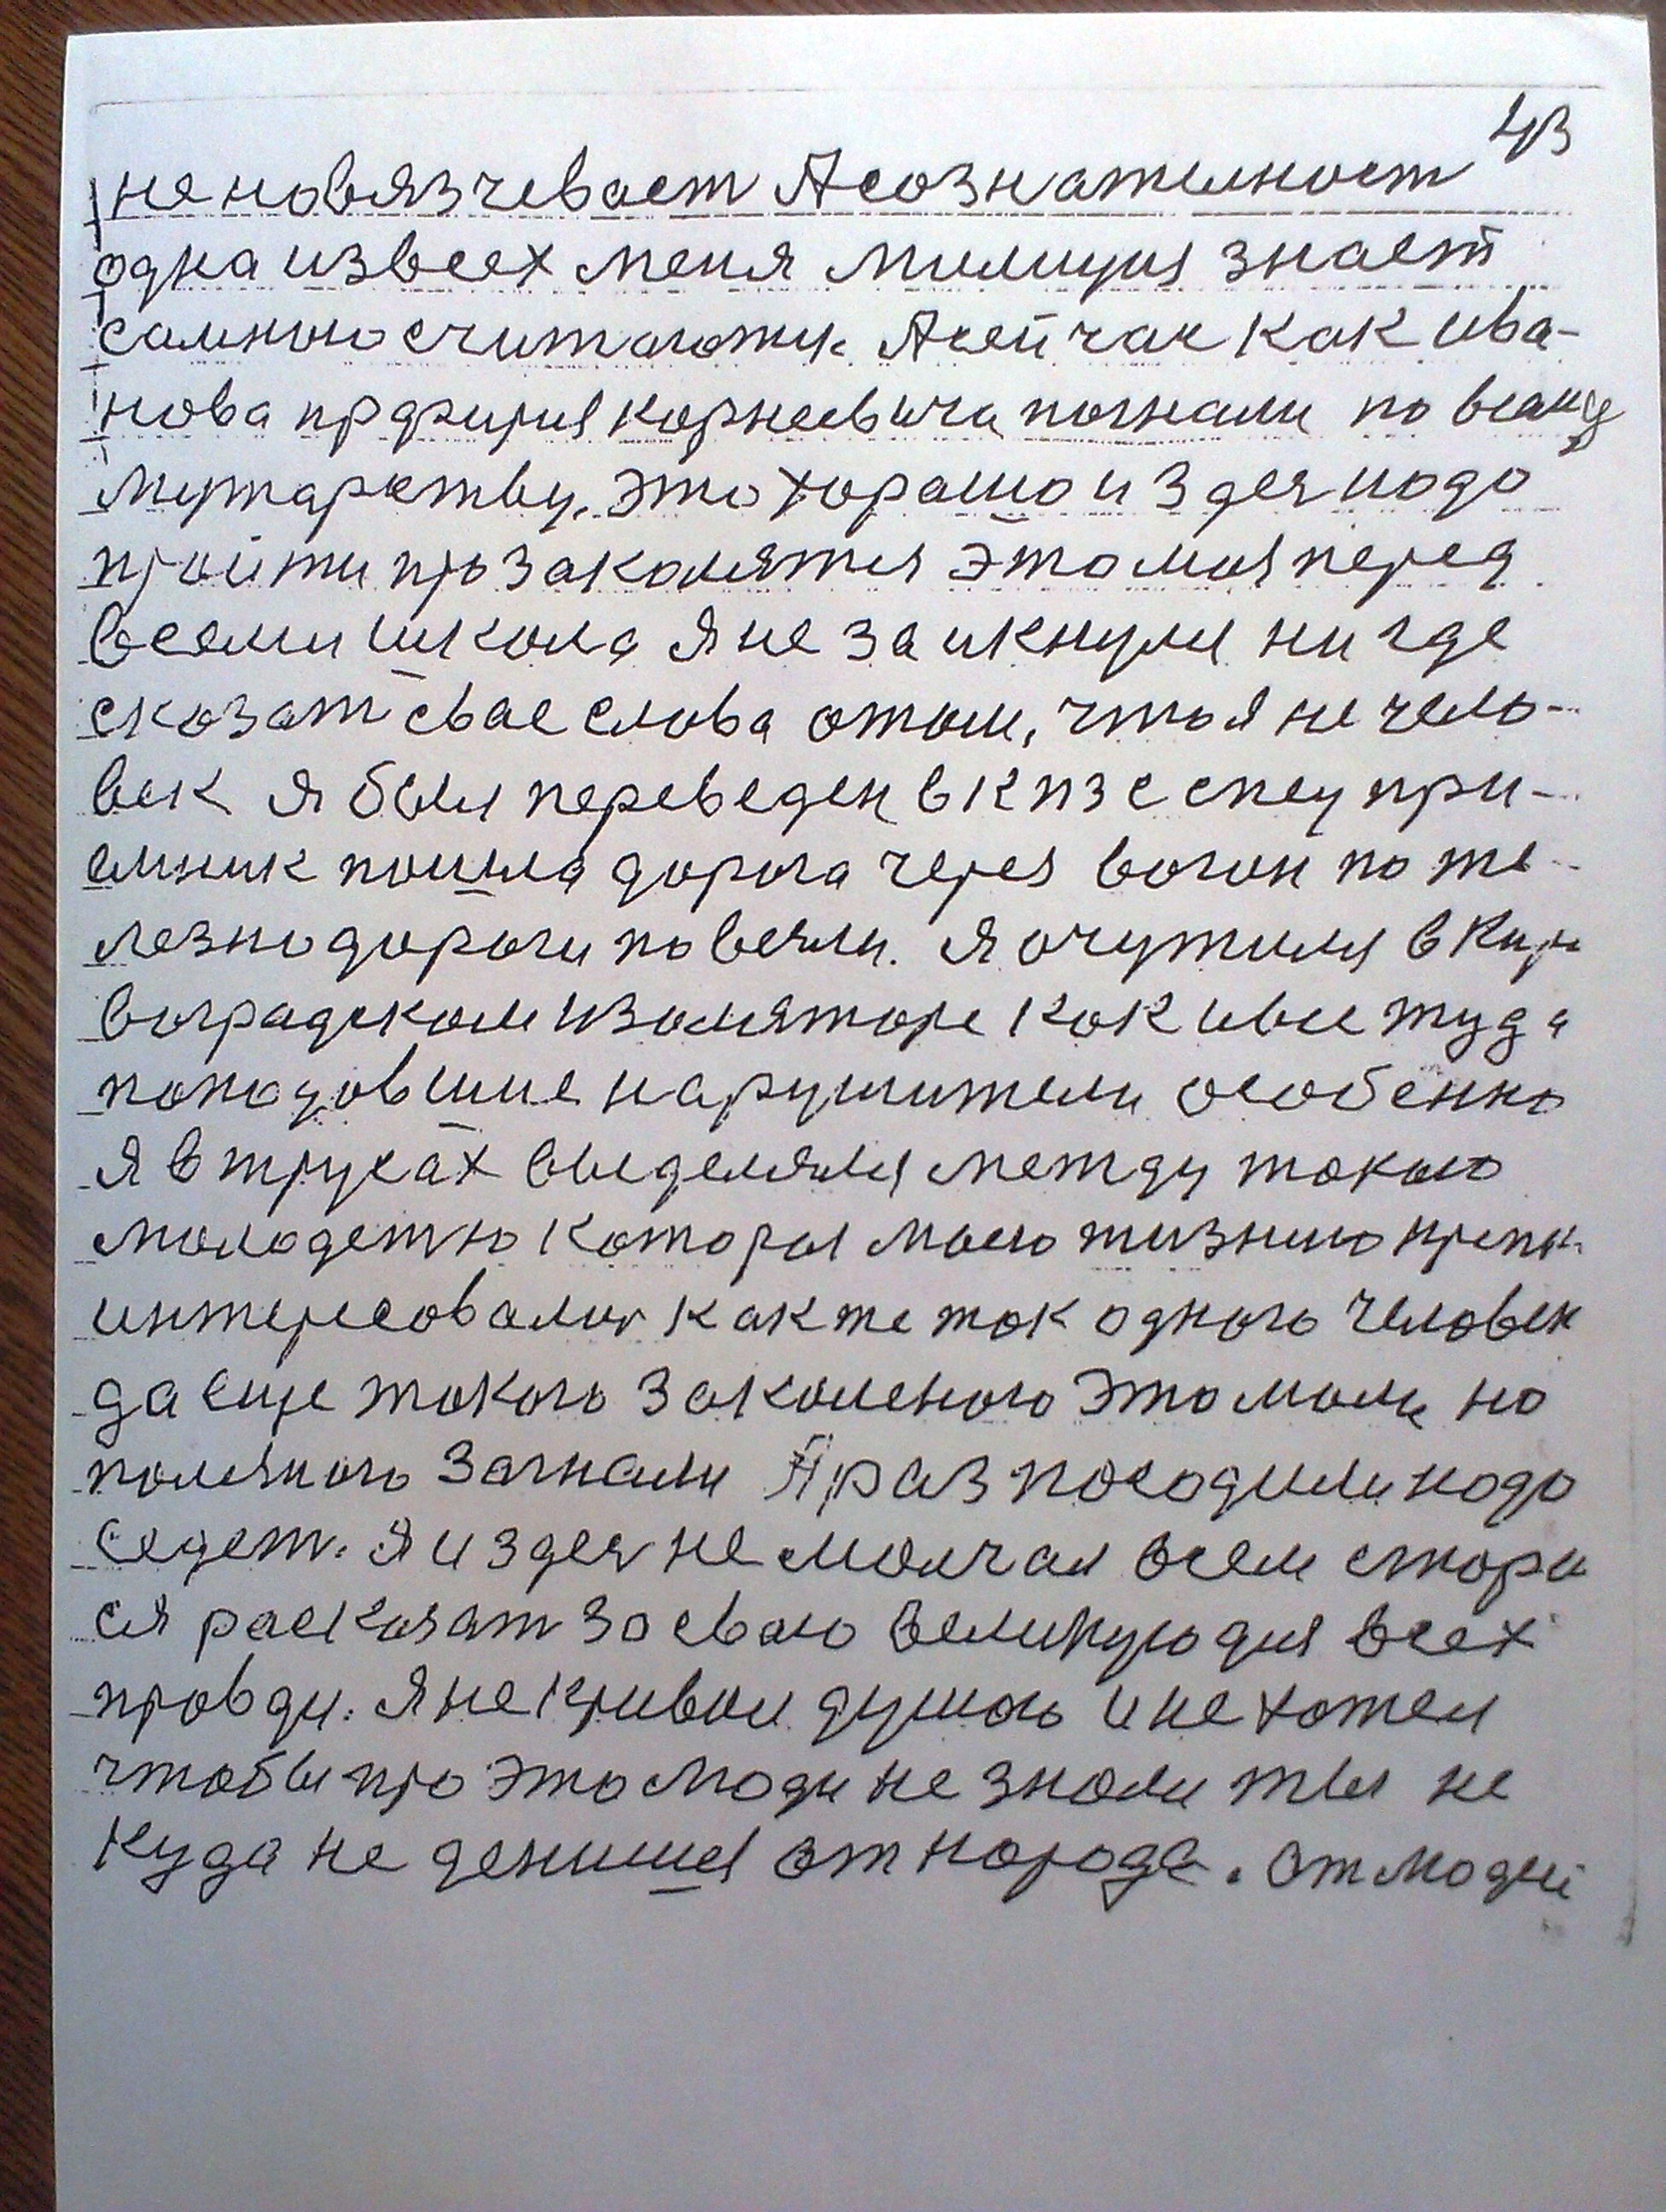 43
не новязчевает А сознателност
одна из всех меня милиция знает
самною считаютця. А сейчас как Ива-
нова Корнеевича погнали по всему
мутарству. Это хорашо и здея надо
пройти про законятия это моя перед
всеми школа Я не заикнулся нигде
сказат свае слова отом, что я не чело-
век я был переведен в КПЗ с спец при-
емник пошла дорога через вогон по же-
лезно дороги повезли. Я очутился в Киро
воградском изоляторе как и все туда
попадовшие нарушители особенно
Я в трусах выделялся между такою
молодежю которыя маею жизнию крепко
интересовалис как же ток одного человек
да еще такого закаленого это мол на
полного загнали А раз посодили надо
седет. Я и здея не молчал всем старал
ся расказат за сваю великую для всех
правду. Я не кривил душою и не хотел
чтобы про это люди не знали ты не
куда не денишся от народа. От людей